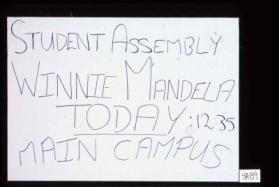 STUDENT ASSEMBLY
WINNIE MANDELA
TODAY : 12:35
MAIN CAMPUS